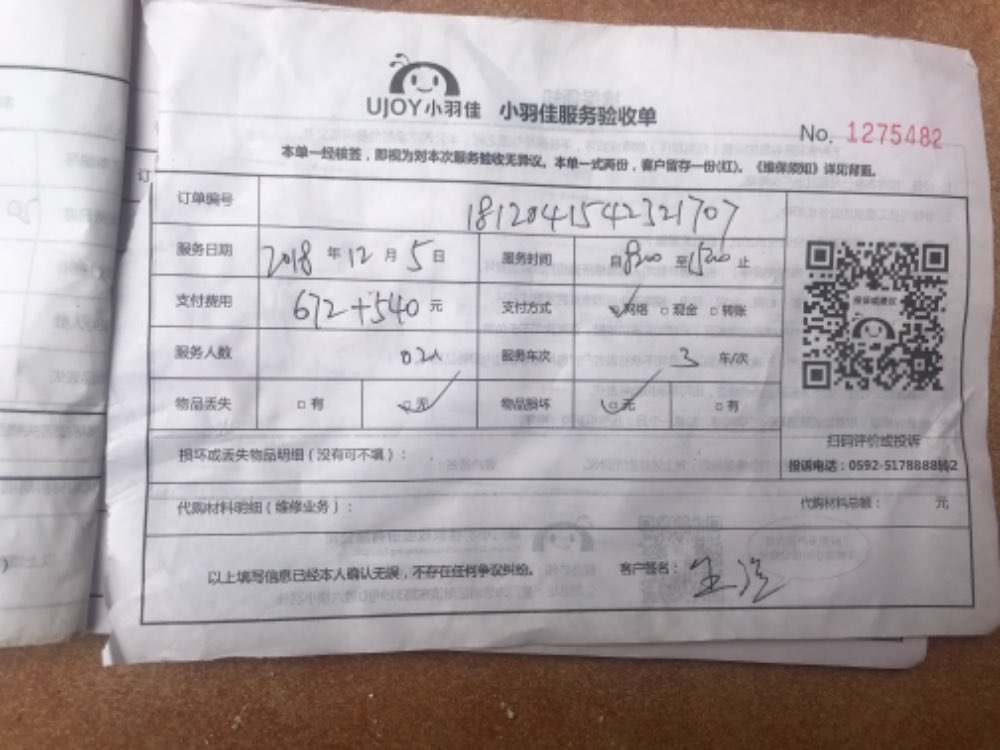 UJOY小羽佳 小羽佳服务验收单
No. 1275482
本单一经核签，即视为对本次服务验收无异议。本单一式两份，客户留存一份(红)。《维保须知》详见背面。
订单编号 1812041542321707
服务日期 2018 年 12 月 5 日 服务时间 自 8:00 至 15:00 止
支付费用 672+540 元 支付方式 ☑网络 □现金 □转账
服务人数 02人 服务车次 3 车/次
物品丢失 □有 ☑无 物品损坏 ☑无 □有
投诉或建议
扫码评价或投诉
投诉电话：0592-5178888转2
损坏或丢失物品明细（没有可不填）：
代购材料明细（维修业务）： 代购材料总额： 元
以上填写信息已经本人确认无误，不存在任何争议纠纷。 客户签名：